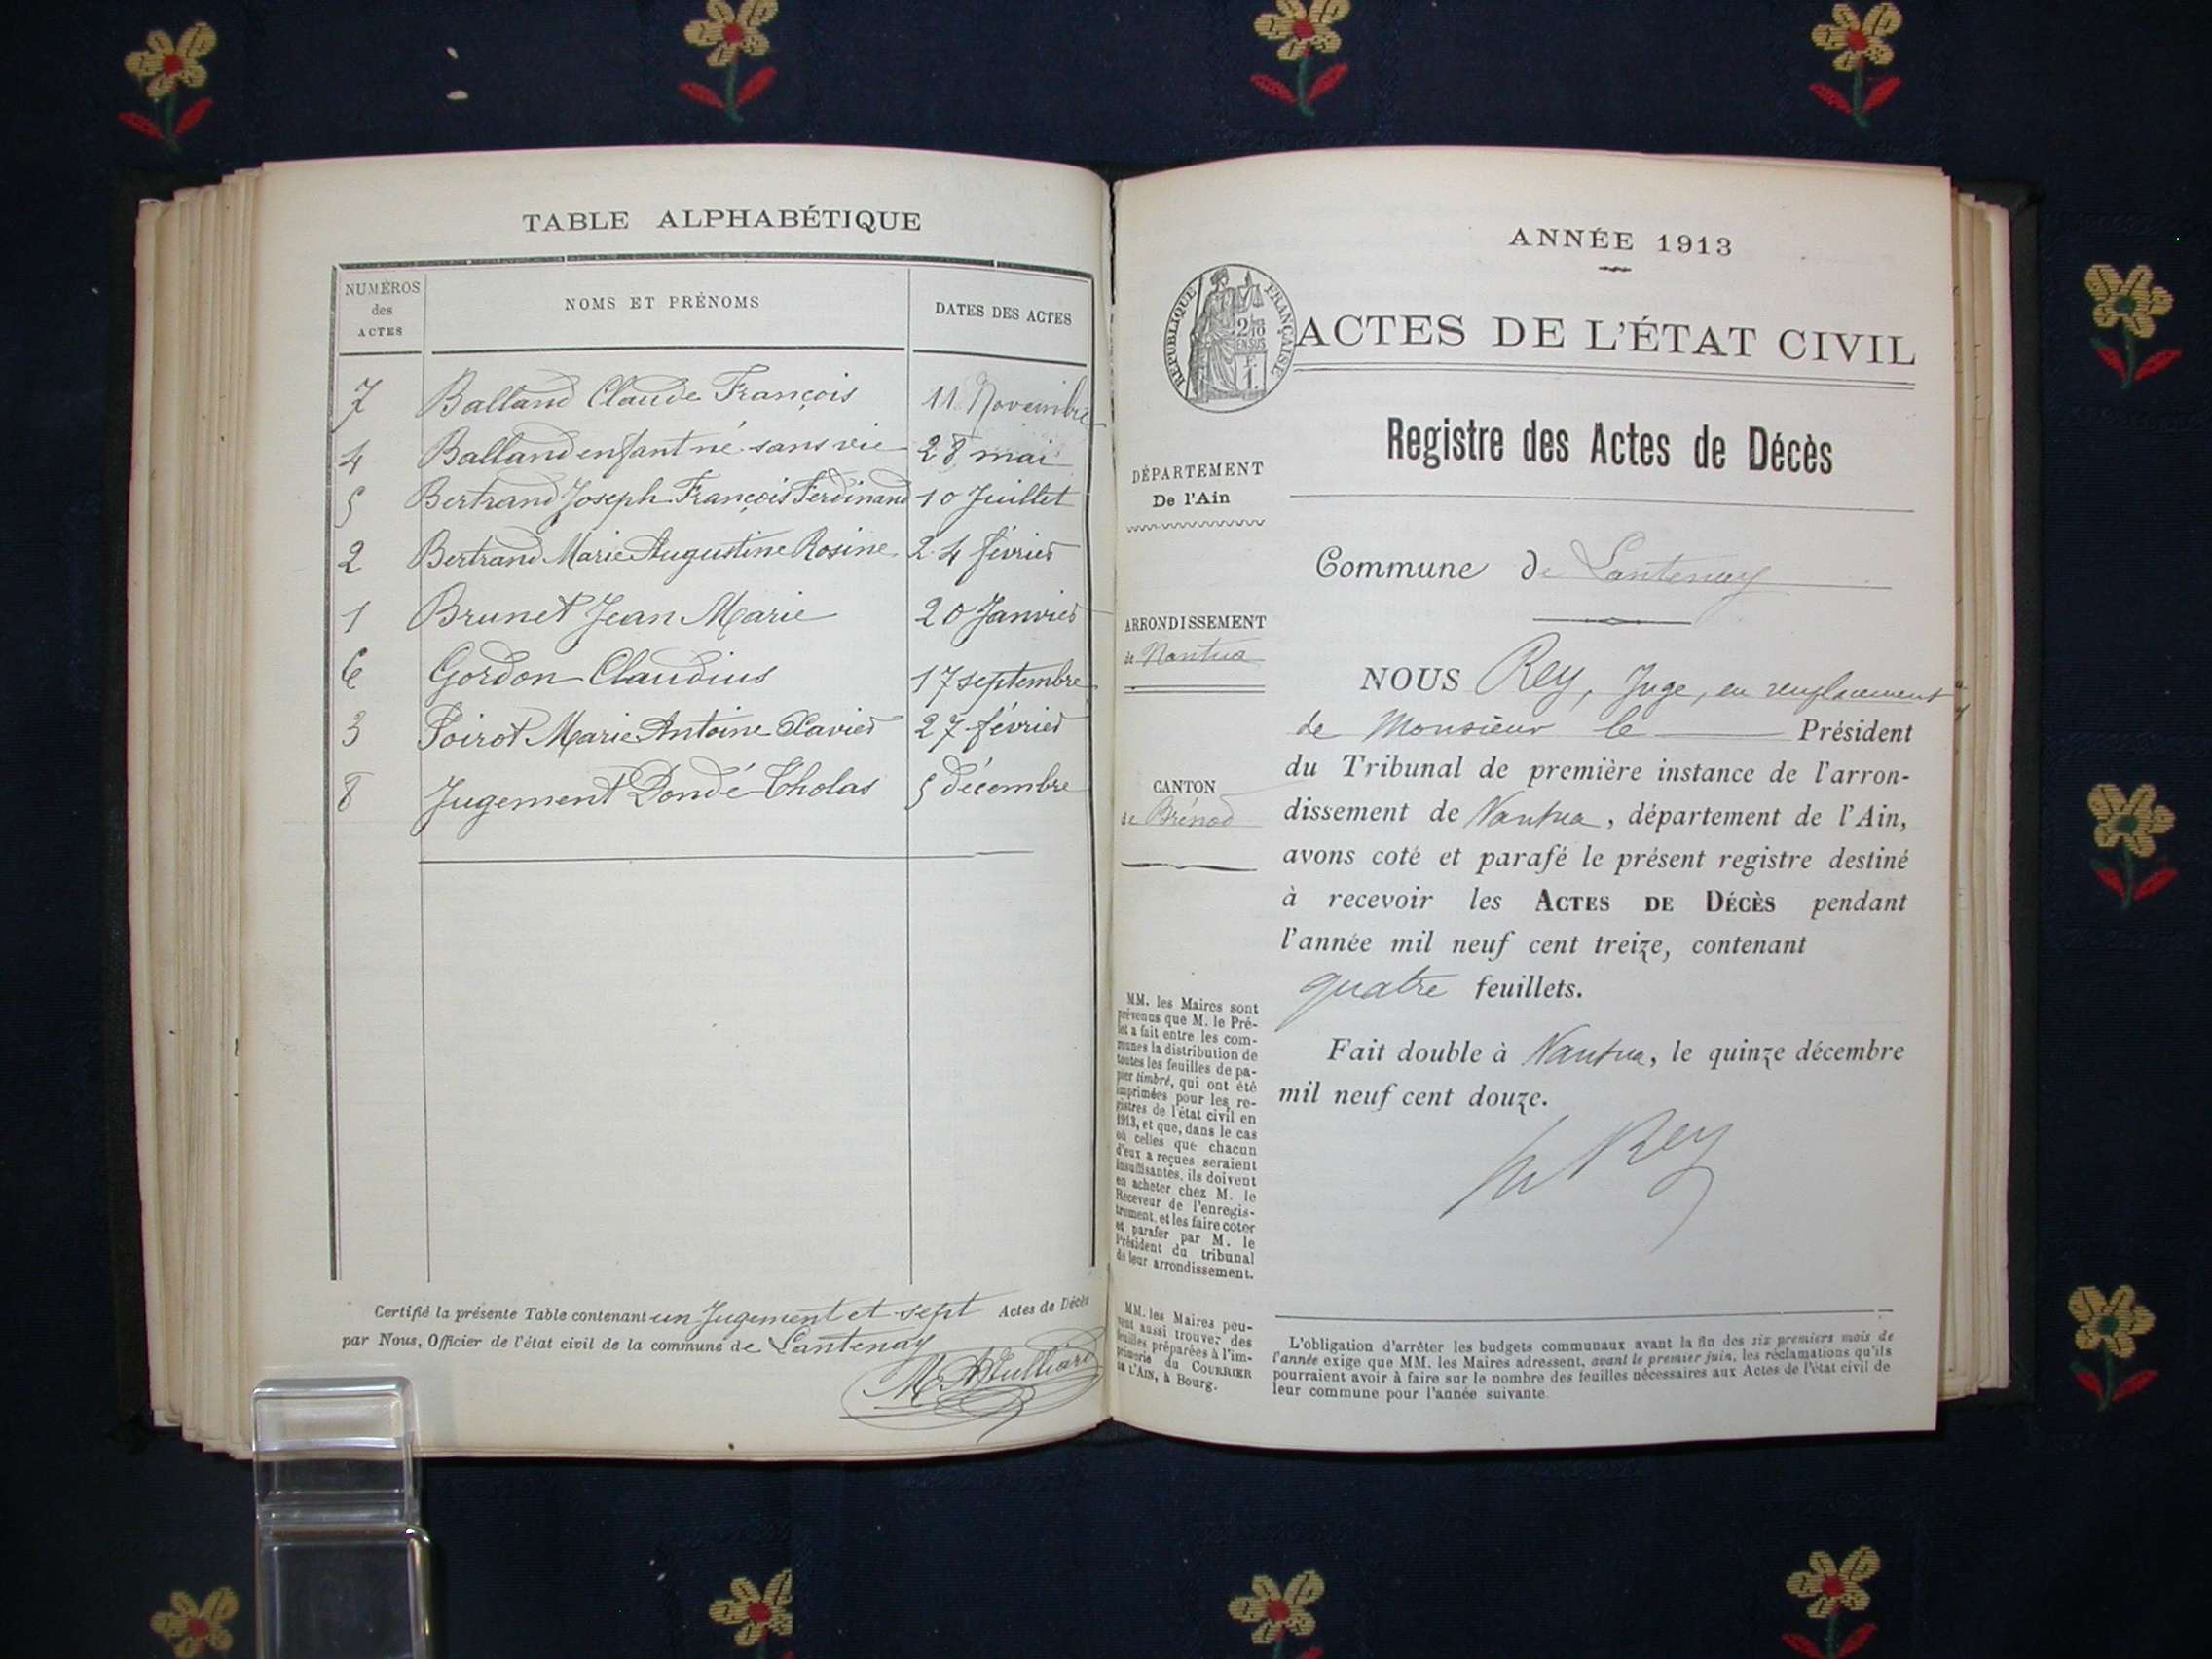 TABLE ALPHABÉTIQUE
NUMÉROS des ACTES
NOMS ET PRÉNOMS
DATES DES ACTES
7 Balland Claude François 11 Novembre
4 Balland enfant né sans vie 28 mai
5 Bertrand Joseph François Ferdinand 10 Juillet
2 Bertrand Marie Augustine Rosine 24 février
1 Brunet Jean Marie 20 Janvier
6 Gordon Claudius 17 septembre
3 Poirot Marie Antoine Xavier 27 février
8 Jugement Dondé Tholas 5 décembre
Certifié la présente Table contenant un Jugement et sept Actes de Décès
par Nous, Officier de l'état civil de la commune de Lantenay
ANNÉE 1913
RÉPUBLIQUE FRANÇAISE
2/10
EN SUS
F.
1.
ACTES DE L'ÉTAT CIVIL
Registre des Actes de Décès
DÉPARTEMENT
De l'Ain
Commune de Lantenay
ARRONDISSEMENT
de Nantua
CANTON
de Brénod
NOUS Rey, Juge, en remplacement
de Monsieur le Président
du Tribunal de première instance de l'arron-
dissement de Nantua, département de l'Ain,
avons coté et parafé le présent registre destiné
à recevoir les ACTES DE DÉCÈS pendant
l'année mil neuf cent treize, contenant
quatre feuillets.
Fait double à Nantua, le quinze décembre
mil neuf cent douze.
Rey
MM. les Maires sont
prévenus que M. le Pré-
fet a fait entre les com-
munes la distribution de
toutes les feuilles de pa-
pier timbré, qui ont été
imprimées pour les re-
gistres de l'état civil en
1913, et que, dans le cas
où celles que chacun
d'eux a reçues seraient
insuffisantes, ils doivent
en acheter chez M. le
Receveur de l'enregis-
trement, et les faire coter
et parafer par M. le
Président du tribunal
de leur arrondissement.
MM. les Maires peu-
vent aussi trouver des
feuilles préparées à l'im-
primerie du COURRIER
DE L'AIN, à Bourg.
L'obligation d'arrêter les budgets communaux avant la fin des six premiers mois de
l'année exige que MM. les Maires adressent, avant le premier juin, les réclamations qu'ils
pourraient avoir à faire sur le nombre des feuilles nécessaires aux Actes de l'état civil de
leur commune pour l'année suivante.